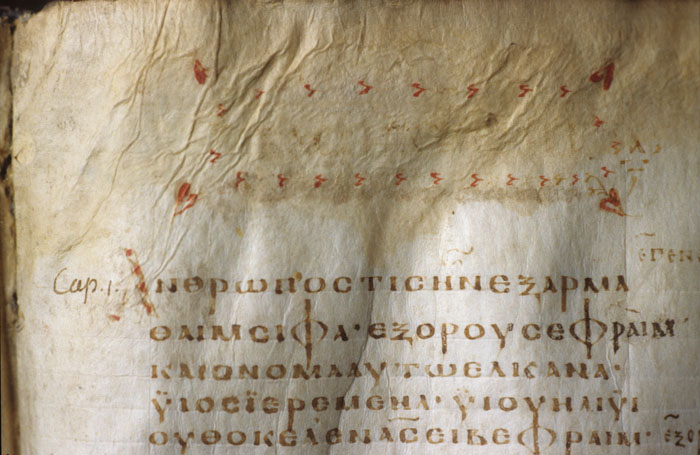 Cap. 1. ΑΝΘΡΩΠΟCΤΙCΗΝΕΞΑΡΜΑ
ΕΓΕΝ
ΘΑΙΜCΙΦΑ·ΕΞΟΡΟΥCΕΦΡΑΙΜ·
ΚΑΙΟΝΟΜΑΑΥΤΩΕΛΚΑΝΑ·
ΫΙΟCΪΕΡΕΜΕΗΛ·ΫΙΟΥΗΛΙΥΙ
ΟΥΘΟΚΕΛΕΝΑCCΕΙΒΕΦΡΑΙΜ· ΕΞΟΡ